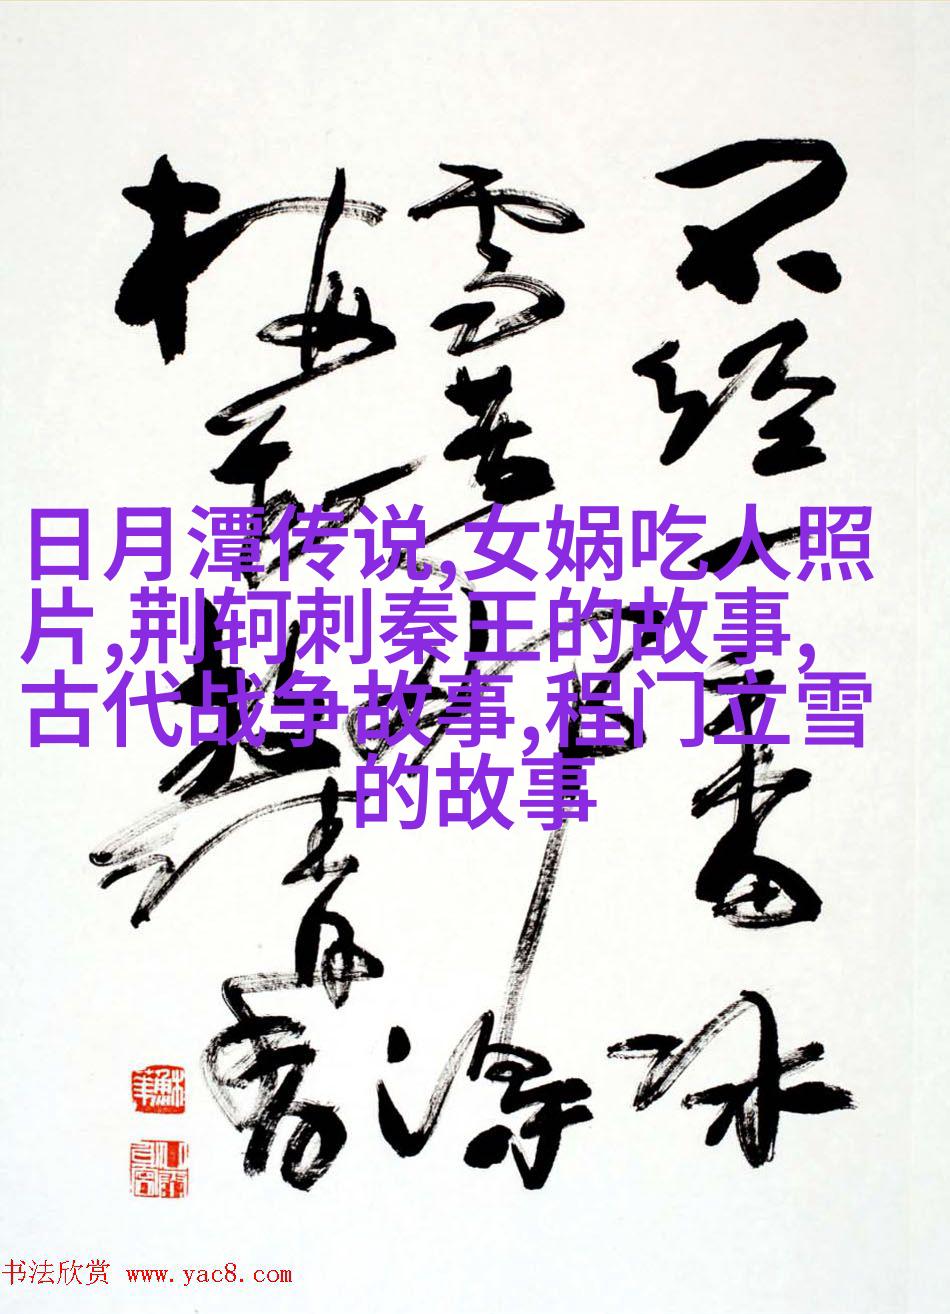 日月潭传说,女娲吃人照
片,荆轲刺秦王的故事,
古代战争故事,程门立雪
的故事
不经一番冰
雪苦得
梅清香
书法欣赏 www.yac8.com